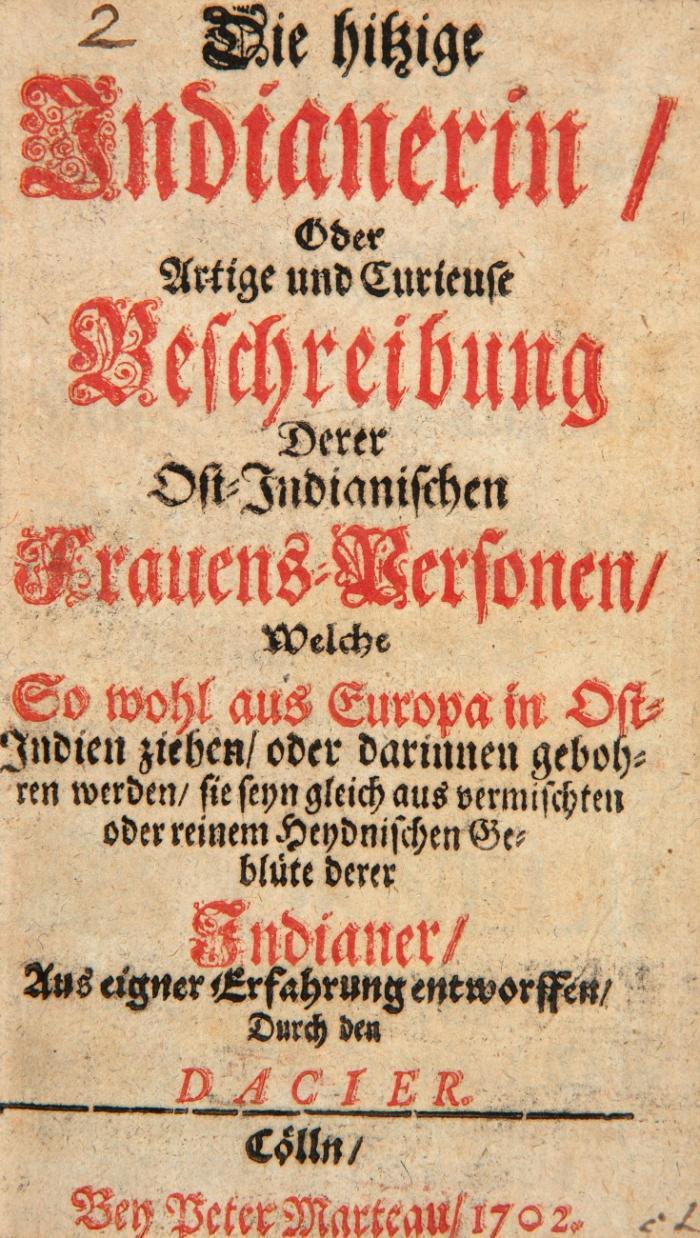 2
Die hitzige
Indianerin /
Oder
Artige und Curieuse
Beschreibung
Derer
Ost-Indianischen
Frauens-Personen/
Welche
So wohl aus Europa in Ost-
Indien ziehen/ oder darinnen geboh-
ren werden/ sie seyn gleich aus vermischten
oder reinem Heydnischen Ge-
blüte derer
Indianer/
Aus eigner Erfahrung entworffen/
Durch den
DACIER.
Cölln/
Bey Peter Marteau/ 1702.